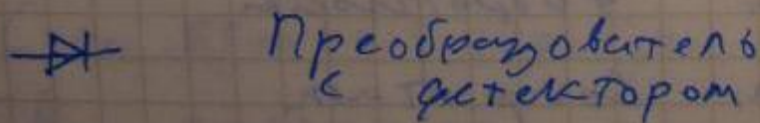 Преобразователь
с детектором